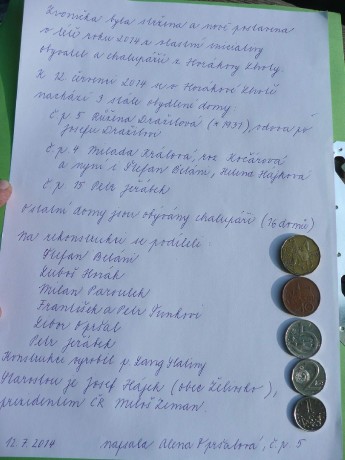 Zvonička byla stržena a nově postavena
v létě roku 2014 z vlastní iniciativy
obyvatel a chalupářů z Horákovy Lhoty.
K 12. červenci 2014 se v Horákově Lhotě
nachází 3 stále obydlené domy:
č.p. 5 Růžena Dražilová (* 1937), vdova po
Josefu Dražilovi
č.p. 4 Milada Králová, roz. Kočářová
a nyní i Štefan Bilám, Helena Hajková
č.p. 15 Petr Jeřábek
Ostatní domy jsou obývány chalupáři (16 domů)
Na rekonstrukci se podíleli
Štefan Bilám
Luboš Horák
Milan Paroulek
František a Petr
Libor Opršal
Petr Jeřábek
Konstrukci vyrobil p. z
Starostou je Josef Hájek (obec Želivsko),
prezidentem ČR Miloš Zeman
12.7.2014 napsala Alena Opršalová, č.p. 5